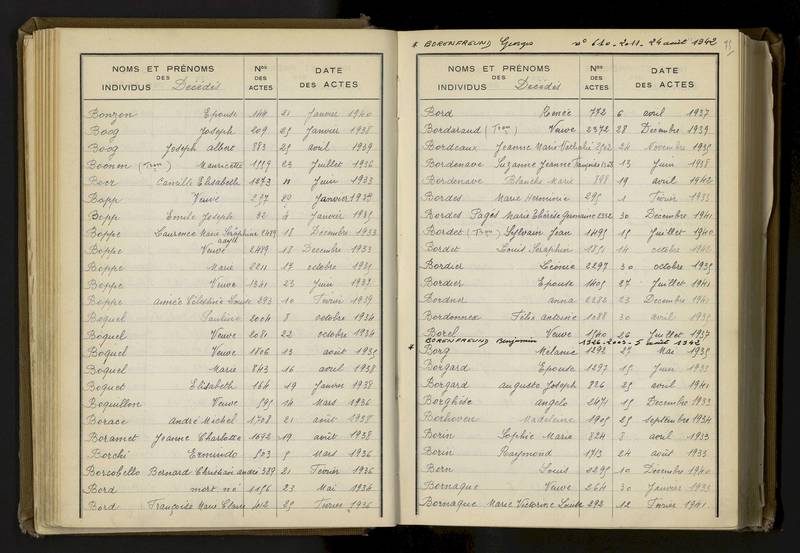 NOMS ET PRÉNOMS DES INDIVIDUS Décédés Nos DES ACTES DATE DES ACTES
Bonzon Epouse 144 21 Janvier 1940
Boog Joseph 209 25 Janvier 1938
Boog Joseph albert 883 25 avril 1939
Boonen Mauricette 1559 23 Juillet 1936
Boor Camille Elisabeth 1273 11 Juin 1933
Bopp Veuve 257 20 Janvier
Bopp Emile Joseph 32 4 Janvier 1935
Boppe Laurence Marie Séraphine 2489 18 Décembre 1933
Boppe Veuve 2489 18 Décembre 1933
Boppe Marie 2211 17 octobre 1935
Boppe Veuve 1341 23 Juin 1937
Boppe Aimée Célestine Louise 293 10 Février 1939
Boquel Pauline 2004 8 octobre 1934
Boquel Veuve 2081 22 octobre 1934
Boquel Veuve 1806 13 août 1935
Boquel Marie 843 16 avril 1938
Boquet Elisabeth 164 19 Janvier 1938
Boquillon Veuve 595 14 Mars 1936
Borace André Michel 1708 21 août 1938
Boramet Jeanne Charlotte 1692 19 août 1938
Borchi Ermindo 503 5 Mars 1936
Borcobello Bernard Christian andré 389 21 Février 1936
Bord mort né 1156 23 Mai 1934
Bord Françoise Marie Claire 412 25 Février 1936
* BORENFREUND Georges n° 620-2011-24 août 1942
NOMS ET PRÉNOMS DES INDIVIDUS Décédés Nos DES ACTES DATE DES ACTES
Bord Renée 772 6 avril 1937
Borderaud Veuve 2372 28 Décembre 1939
Bordeaux Jeanne Marie 24 Novembre 1935
Bordenave Suzanne Jeanne Françoise 13 Juin 1938
Bordenave Blanche Marie 898 19 avril 1942
Bordes Marie Herminie 295 1 Février 1933
Bordes Pagès Marie Thérèse Germaine 2332 30 Décembre 1941
Bordet Sylvain Jean 1495 15 Juillet 1940
Bordet Louis Séraphin 1851 14 octobre 1942
Bordier Léonie 2297 30 octobre 1935
Bordier Epouse 1405 27 Juillet 1941
Bordier anna 2282 23 Décembre 1941
Bordonner Félix antoine 1088 30 avril 1935
Borel Veuve 1540 26 Juillet 1937
* BORENFREUND Benjamin 1926-2003-5 août 1942
Borg Mélanie 1292 27 Mai 1935
Borgard Epouse 1297 15 Juin 1933
Borgard auguste Joseph 826 25 avril 1941
Borghèse angelo 2471 15 Décembre 1933
Borhoven Madeleine 1905 25 septembre 1934
Borin Sophie Marie 824 8 avril 1933
Borin Raymond 1713 24 août 1933
Born Louis 2295 10 Décembre 1940
Bornaque Veuve 264 30 Janvier 1933
Bornaque Marie Victorine Louise 292 12 Février 1941